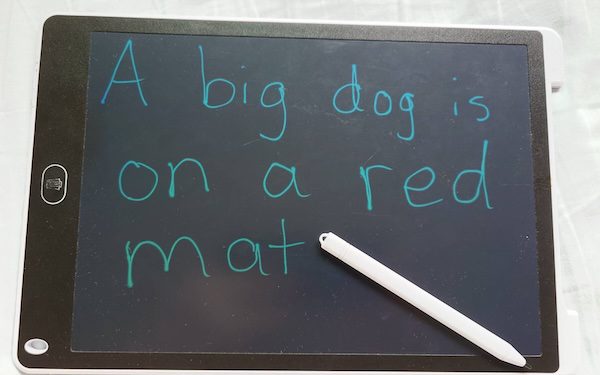 A big dog is
on a red
mat